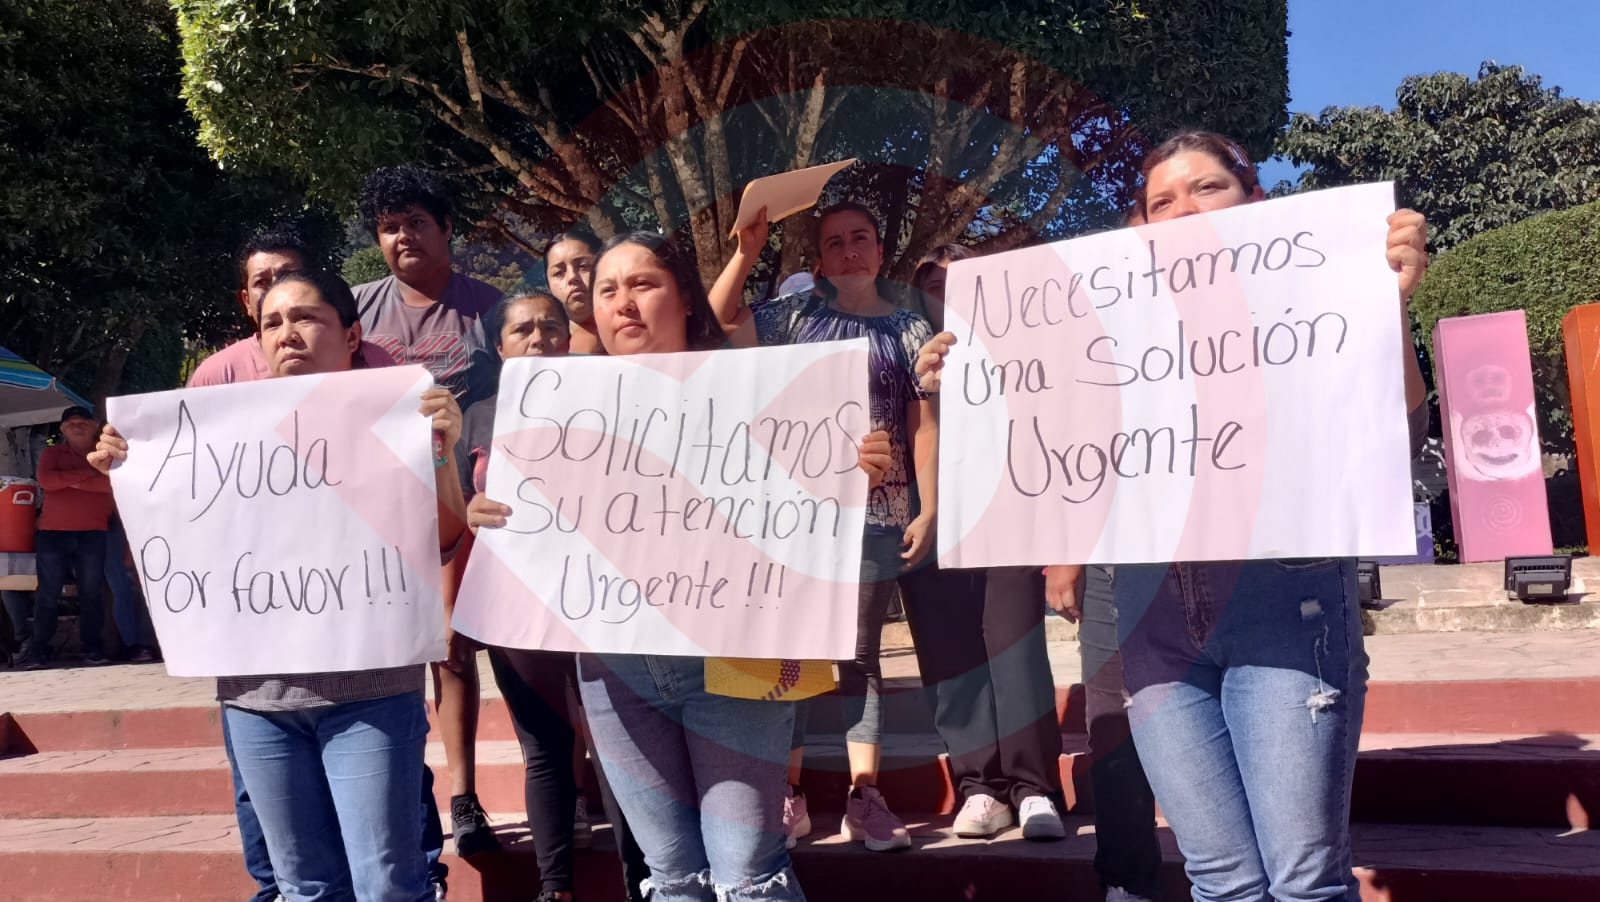 Ayuda
Por favor!!!
Solicitamos
Su atención
Urgente!!!
Necesitamos
una Solución
Urgente